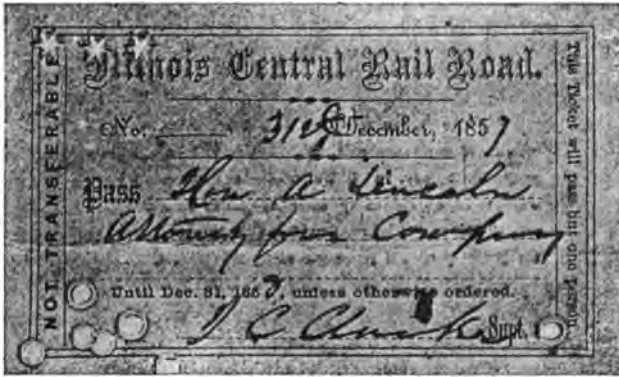 Illinois Central Rail Road.
No. 31st December, 1857
Pass Hon A Lincoln
Attorney for Company
Until Dec. 31, 1857, unless otherwise ordered.
Supt.
NOT TRANSFERABLE
This Ticket will pass but one person